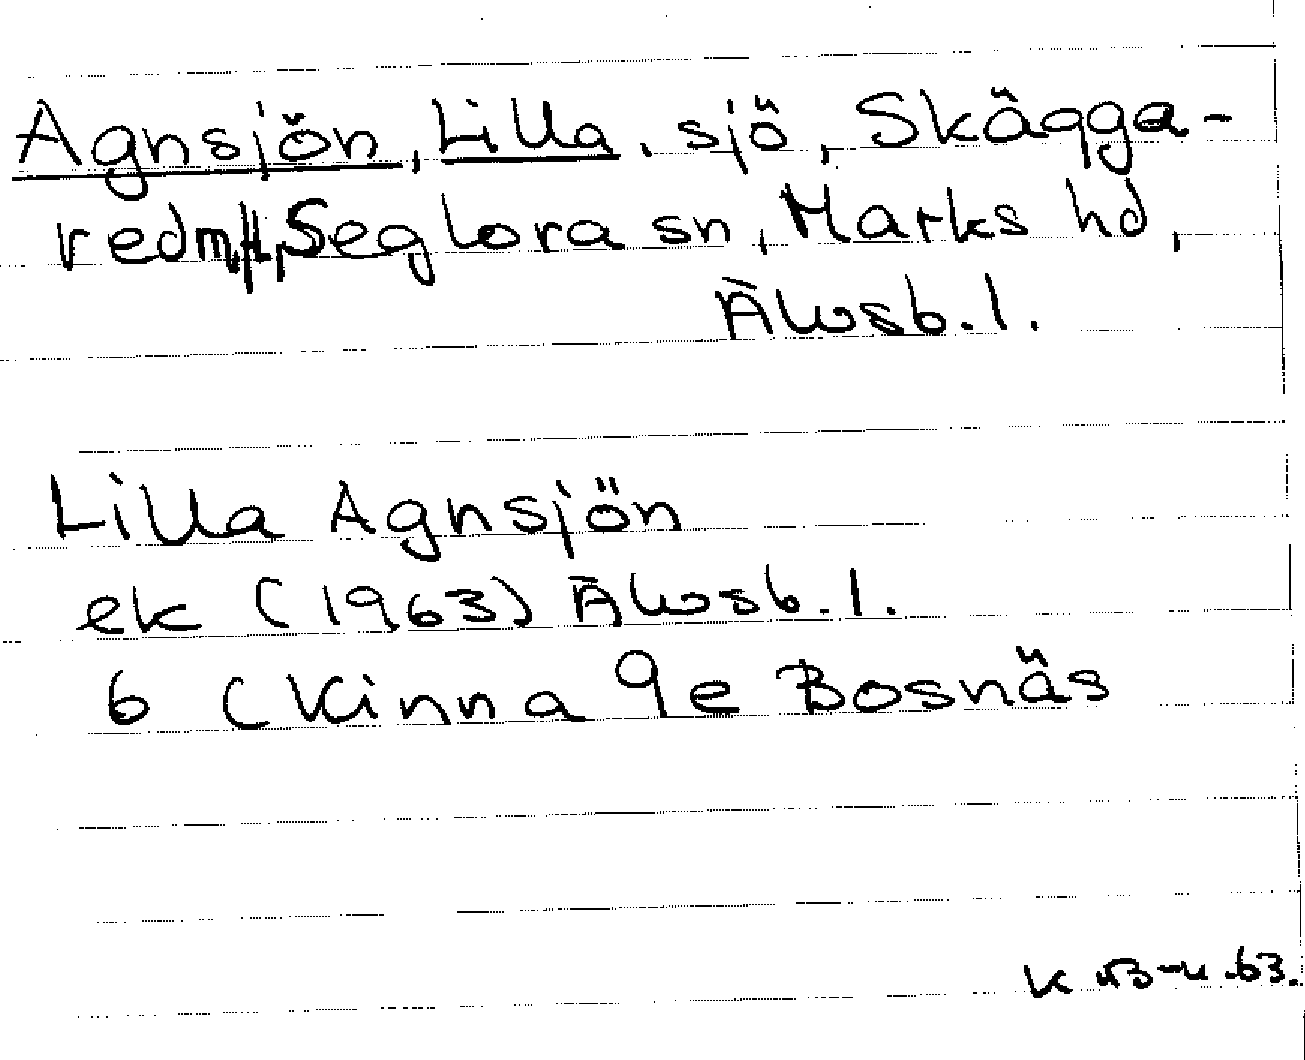 Agnsjön, Lilla, sjö, Skägga-
red m. fl., Seglora sn, Marks hd,
Älvsb. l.
Lilla Agnsjön
ek (1963) Älvsb. l.
6 (Kinna 9e Bosnäs
K